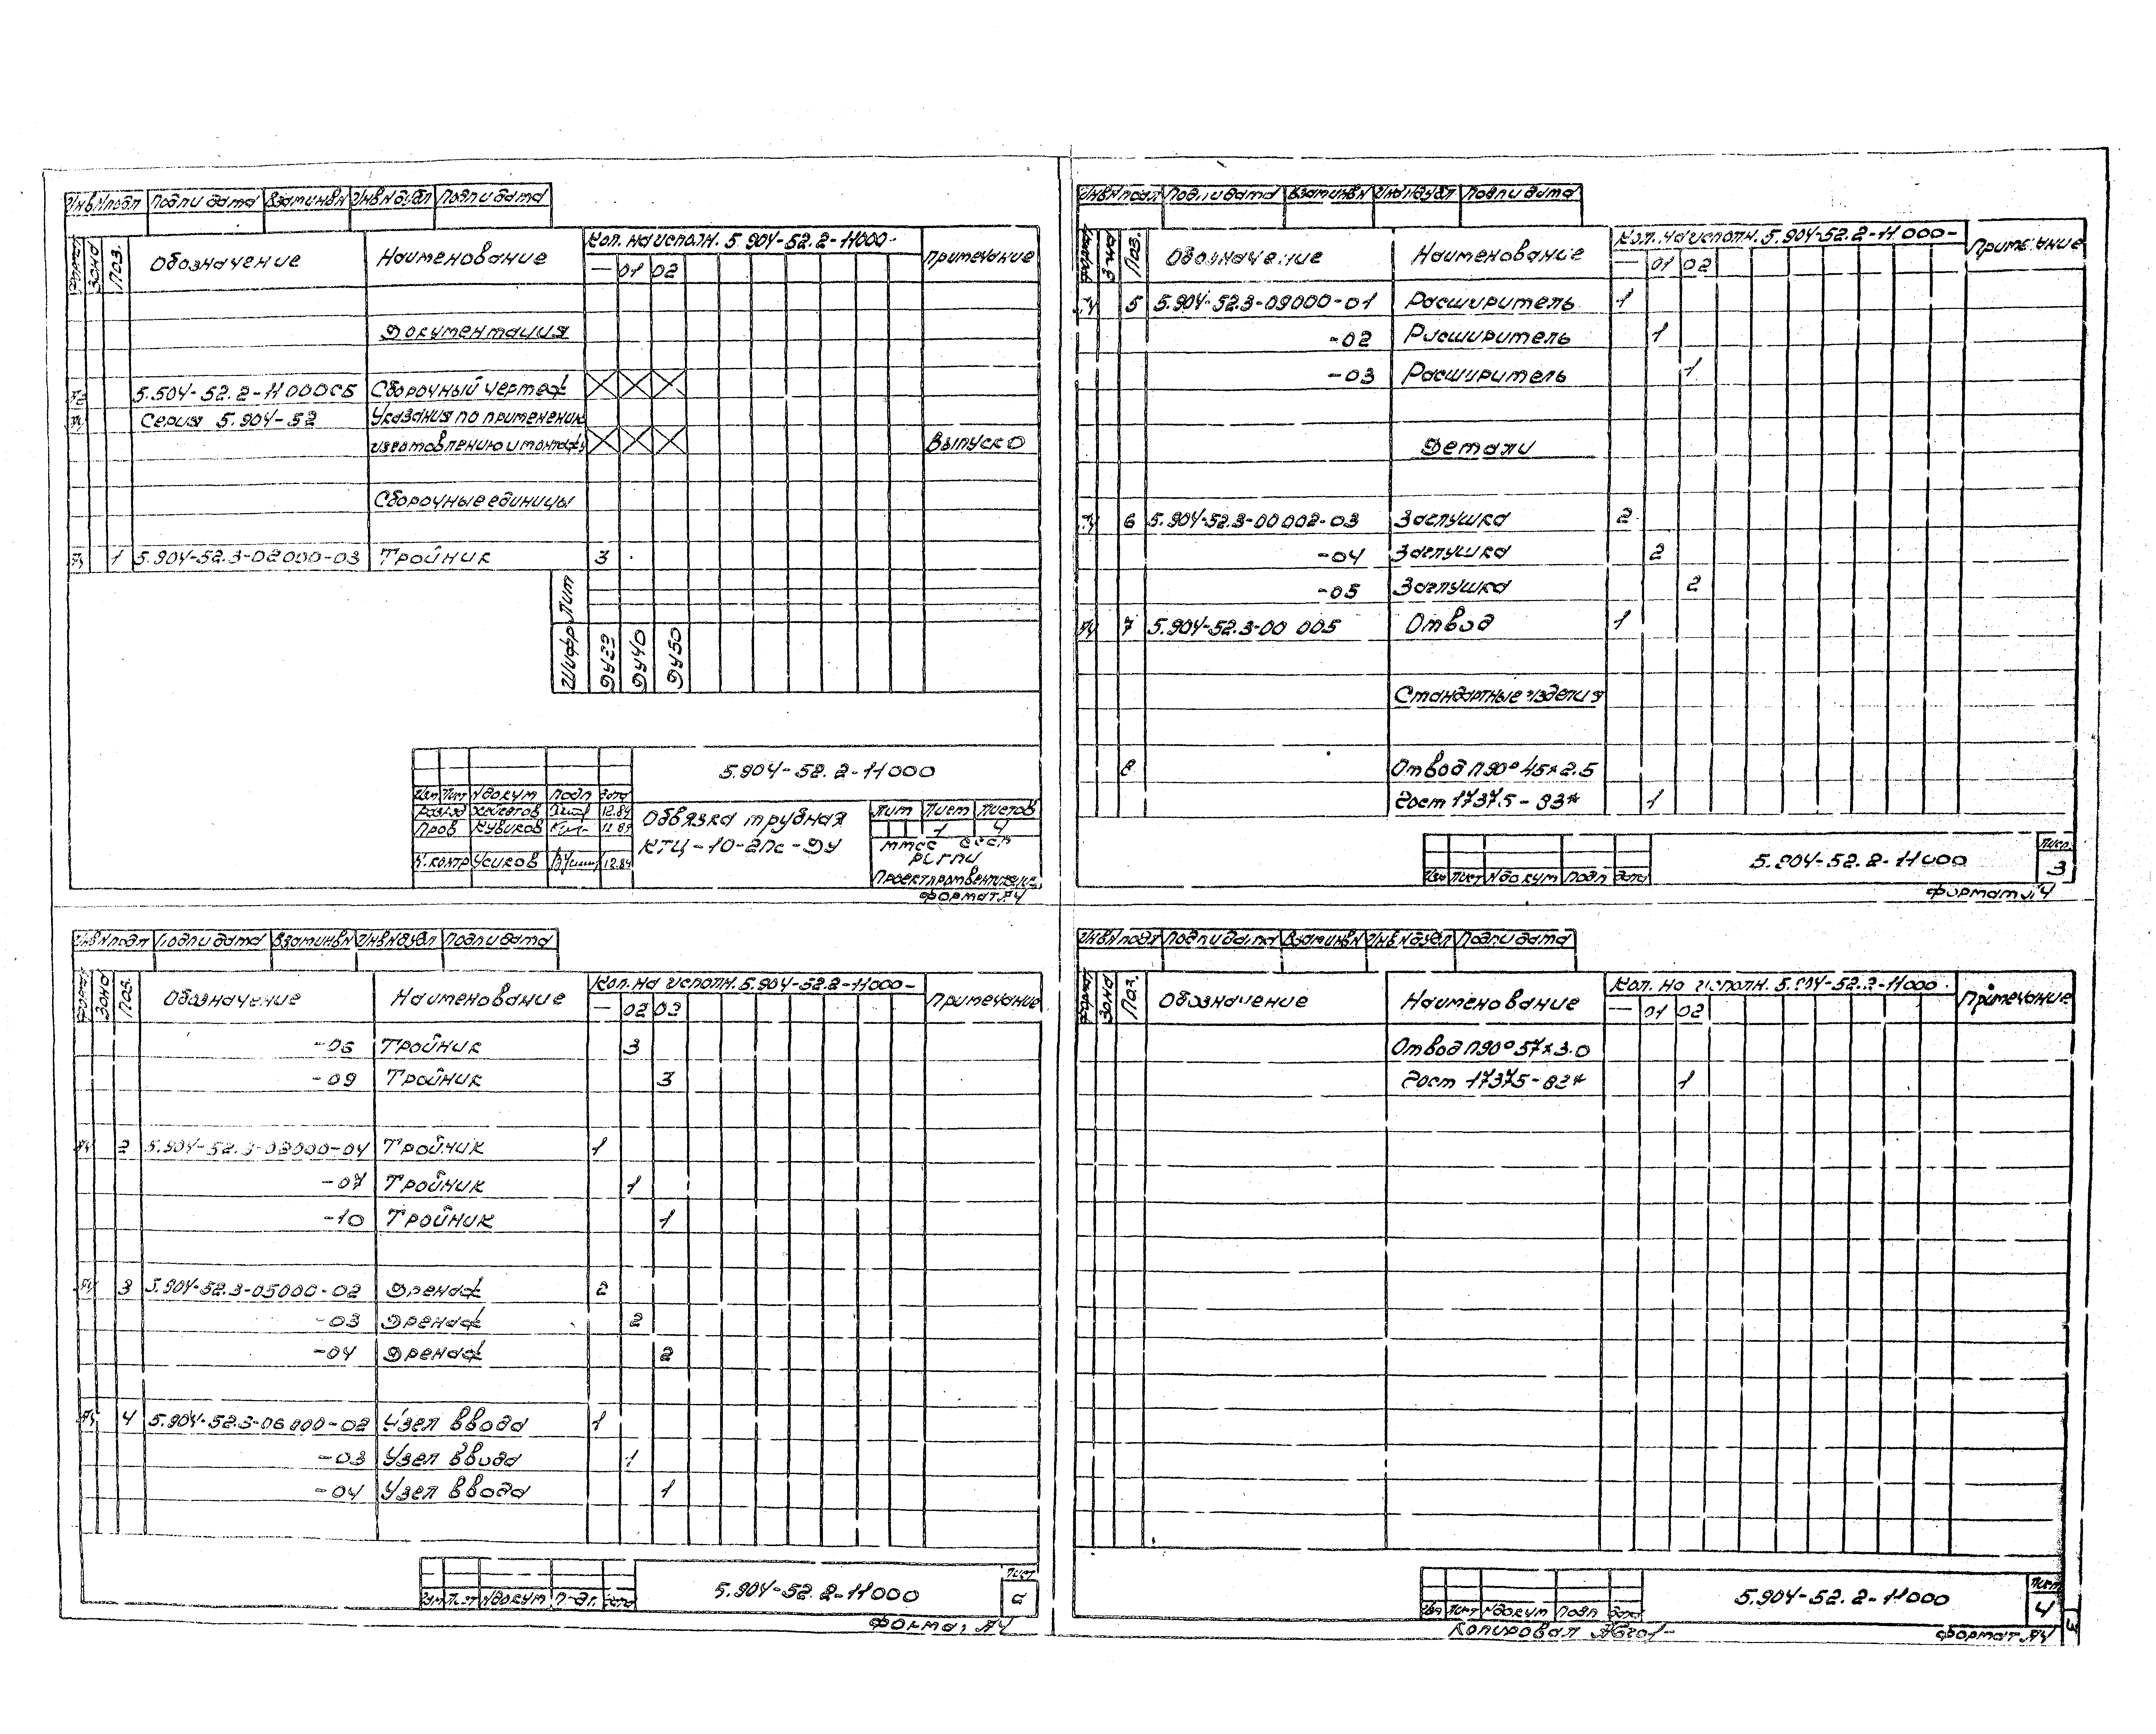 Инв.Nподл Подп и дата Взам инвN Инв N дубл Подп и дата
Формат Зона Поз. Обозначение Наименование Кол. на исполн. 5.904-52.2-11000- Примечание
— 01 02
Документация
5.504-52.2-11000СБ Сборочный чертеж
А4 Серия 5.904-52 Указания по применению
изготовлению и монтажу Выпуск 0
Сборочные единицы
А4 1 5.904-52.3-02000-03 Тройник 3
Шифр Лит
ДУ40 ДУ50
5.904-52.2-11000
Изм Лист N докум Подп Дата
Разраб 12.89
Пров Кубиков 12.89
Н.контр Усиков 12.89
Обвязка трубная
КТЦ-10-2пс-ДУ
Лит Лист Листов
1 4
ММСС СССР
Формат А4
Инв.Nподл Подп и дата Взам инвN Инв N дубл Подп и дата
Формат Зона Поз. Обозначение Наименование Кол. на исполн. 5.904-52.2-11000- Примечание
— 02 03
-06 Тройник 3
-09 Тройник 3
А4 2 5.904-52.3-03000-04 Тройник 1
-07 Тройник 1
-10 Тройник 1
А4 3 5.904-52.3-05000-02 Дренаж 2
-03 Дренаж 2
-04 Дренаж 2
А4 4 5.904-52.3-06000-02 Узел ввода 1
-03 Узел ввода 1
-04 Узел ввода 1
Изм Лист N докум Подп. Дата
5.904-52.2-11000
Лист
2
Формат А4
Инв.Nподл Подп и дата Взам инвN Инв N дубл Подп и дата
Формат Зона Поз. Обозначение Наименование Кол. на исполн. 5.904-52.2-11000- Примечание
— 01 02
А4 5 5.904-52.3-09000-01 Расширитель 1
-02 Расширитель 1
-03 Расширитель 1
Детали
А4 6 5.904-52.3-00002-03 Заглушка 2
-04 Заглушка 2
-05 Заглушка 2
А4 7 5.904-52.3-00 005 Отвод 1
Стандартные изделия
8 Отвод П90° 45×2.5
Гост 17375-83* 1
Изм Лист N докум Подп Дата
5.904-52.2-11000
Лист
3
Формат А4
Инв.Nподл Подп и дата Взам инвN Инв N дубл Подп и дата
Формат Зона Поз. Обозначение Наименование Кол. на исполн. 5.904-52.2-11000- Примечание
— 01 02
Отвод П90° 57×3.0
Гост 17375-83* 1
Изм Лист N докум Подп Дата
5.904-52.2-11000
Лист
4
Копировал
Формат А4
3